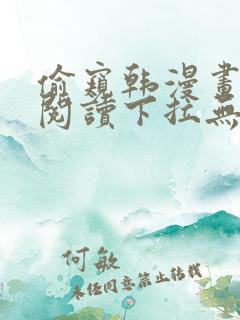 偷窺韩漫畫
閱讀下拉無
何敏
未经同意禁止转载